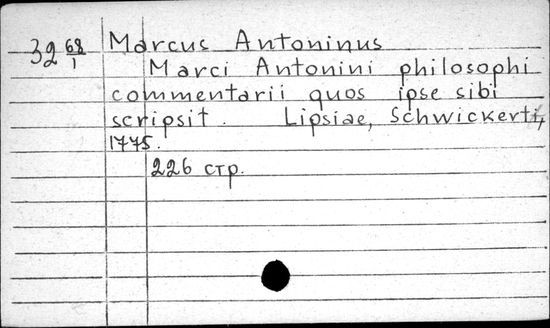 32 68/1 Marcus Antoninus
Marci Antonini philosophi
commentarii quos ipse sibi
scripsit. Lipsiae, Schwickerti,
1775.
226 стр.